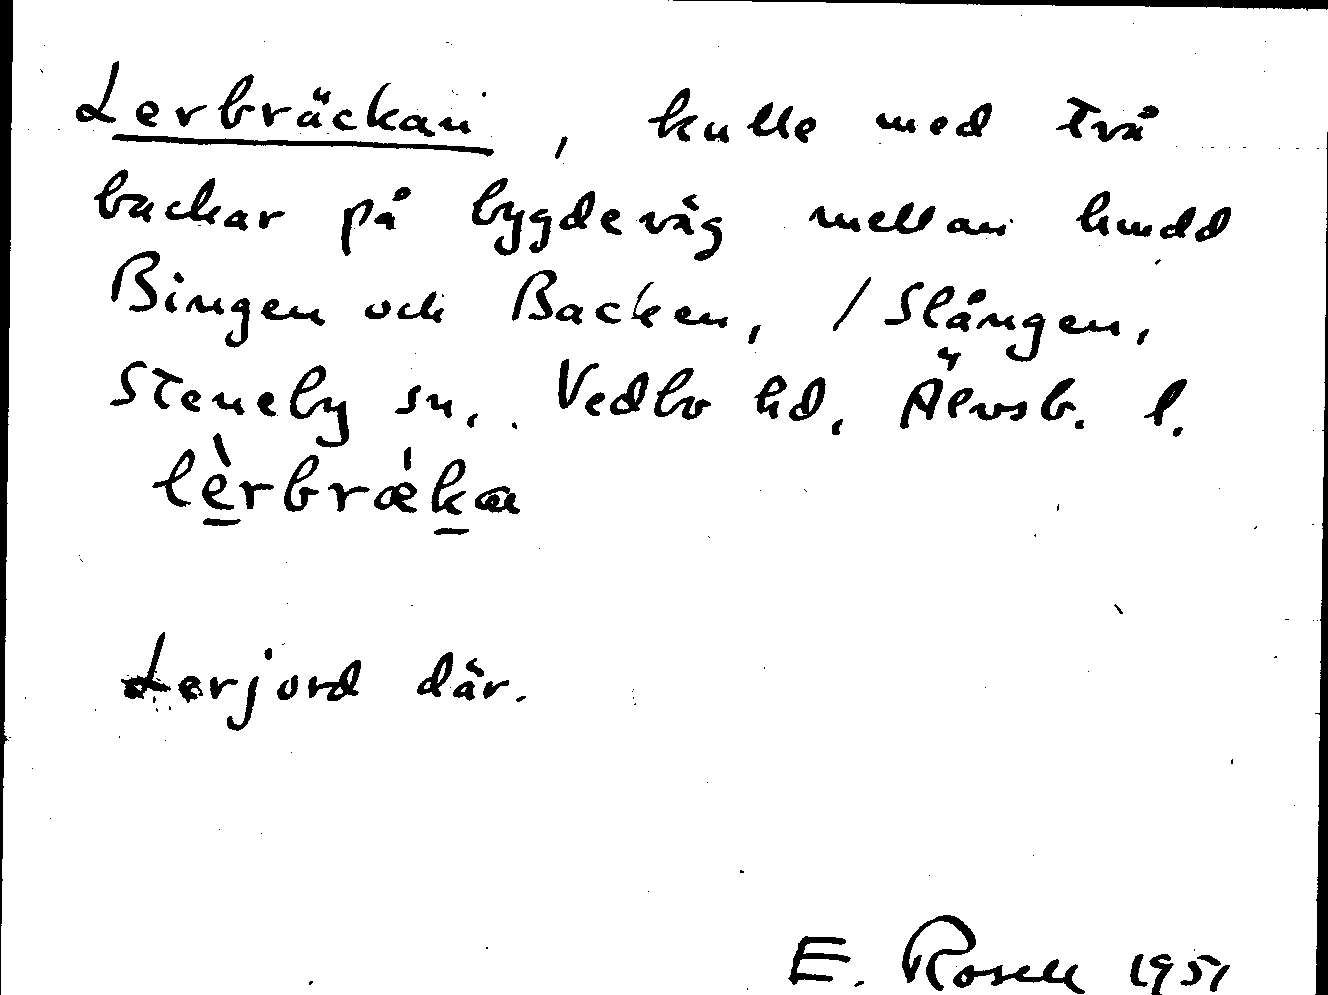 Lerbräckan, kulle med två
backar på bygdeväg mellan hmdd
Bingen och Backen, / Slången,
Steneby sn, Vedbo hd, Älvsb. l.
lèrbrǽka
Lerjord där.
E. Rosell 1951